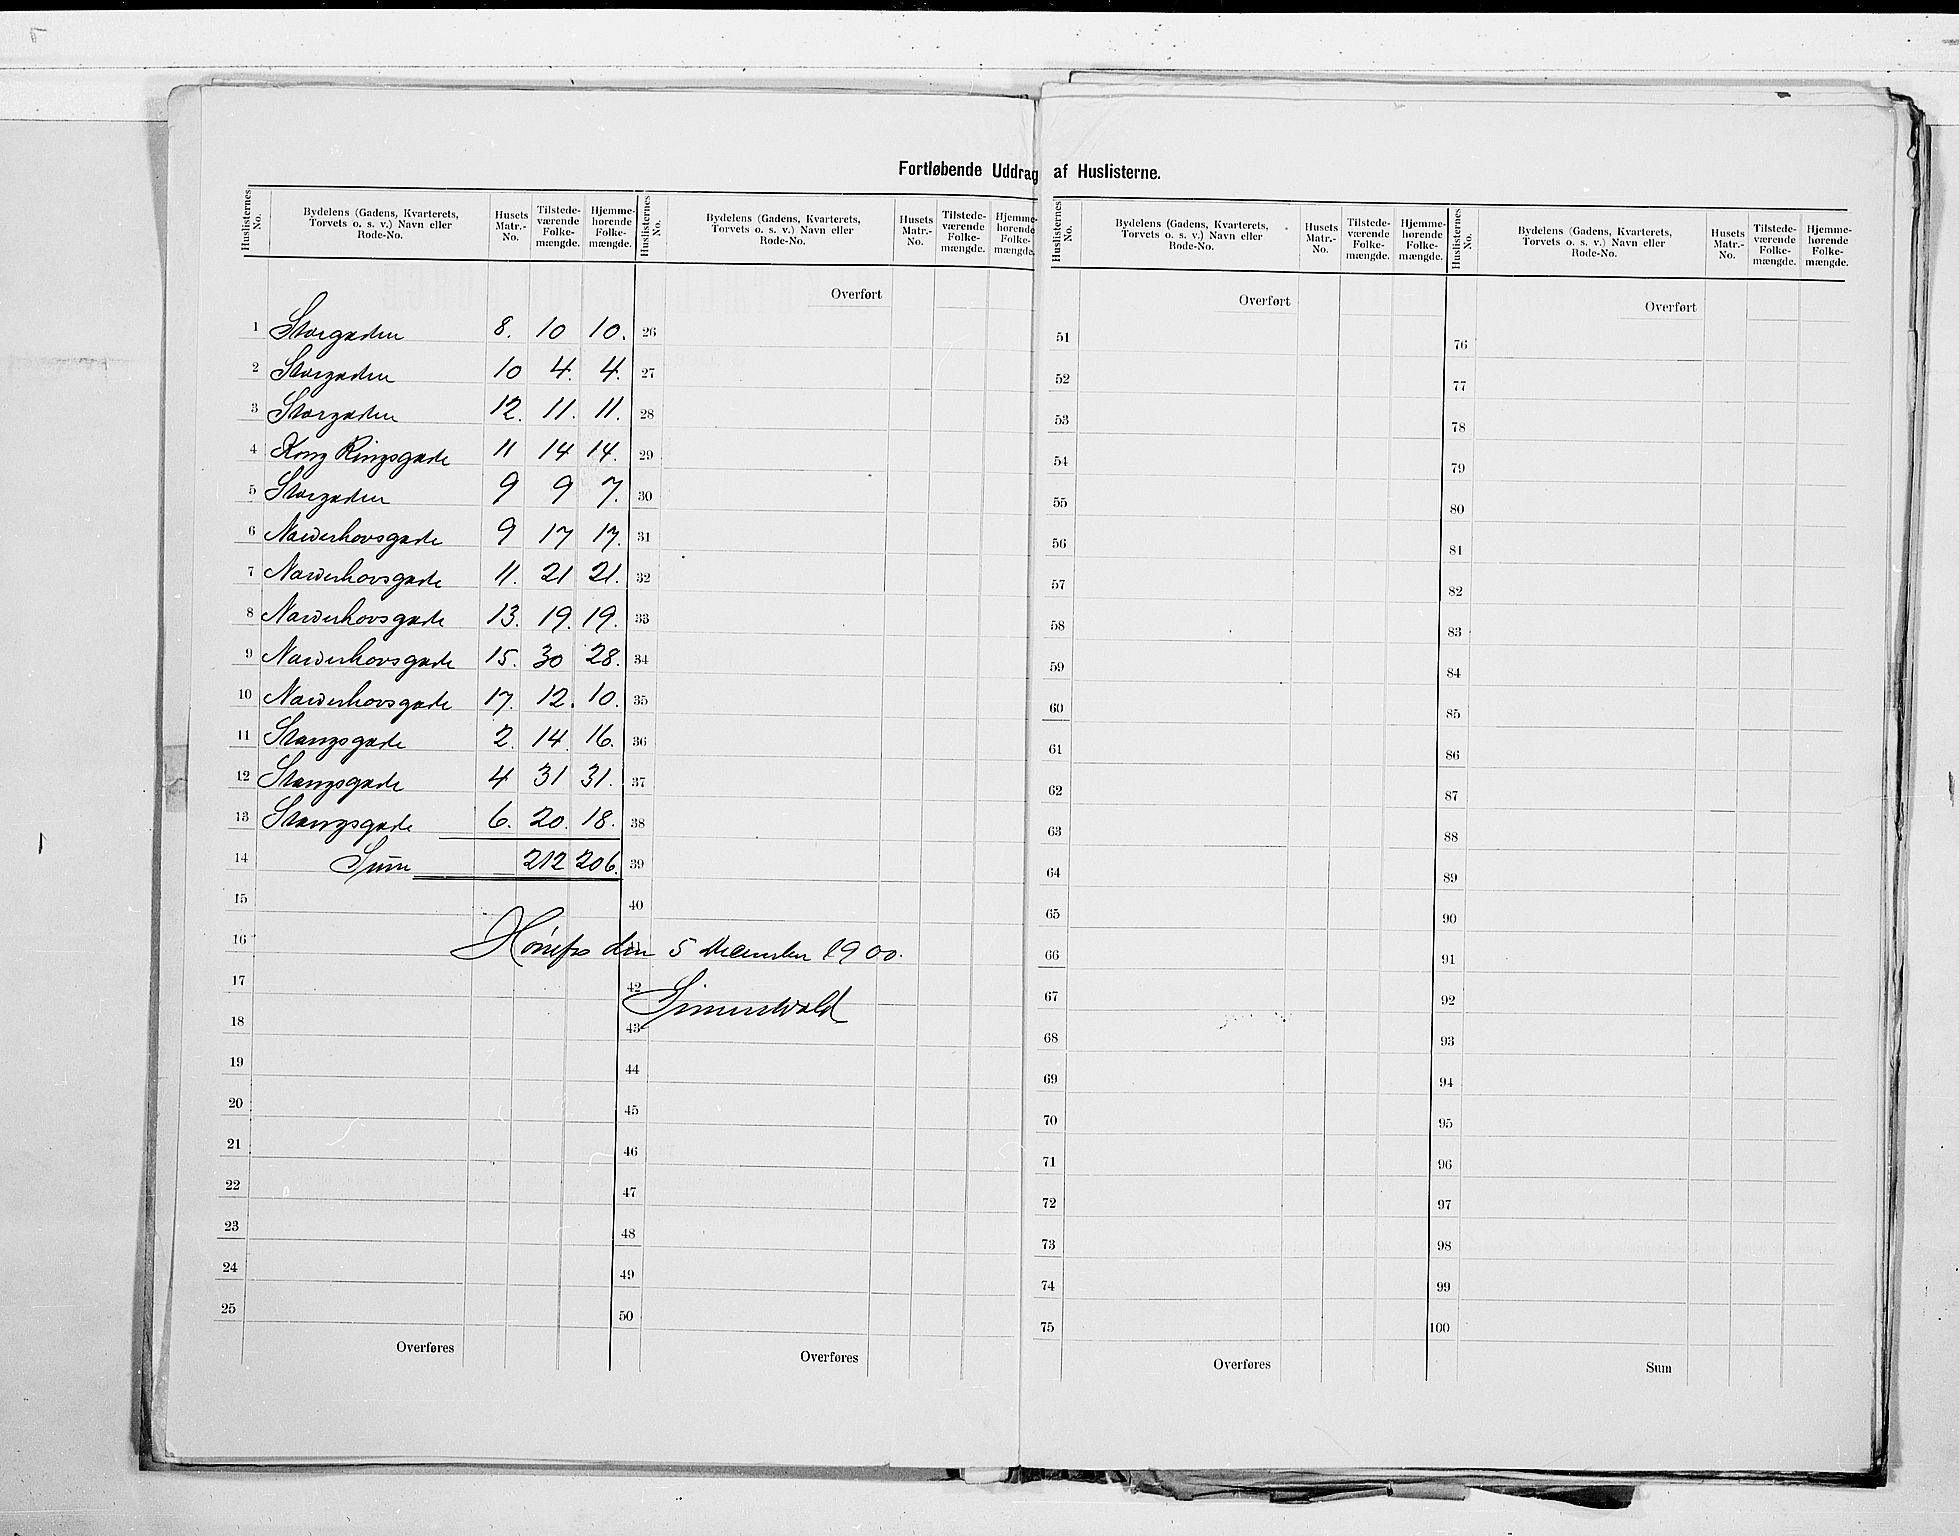 Fortløbende Uddrag af Huslisterne.
Huslisternes No. Bydelens (Gadens, Kvarterets, Torvets o. s. v.) Navn eller Rode-No. Husets Matr.-No. Tilstede-værende Folke-mængde. Hjemme-hørende Folke-mængde.
1 Storgaden 8. 10 10.
2 Storgaden 10 4. 4.
3 Storgaden 12. 11. 11.
4 Kong Ringsgade 11 14 14.
5 Storgaden 9 9 7.
6 Norderhovsgade 9 17 17.
7 Norderhovsgade 11. 21 21.
8 Norderhovsgade 13. 19. 19.
9 Norderhovsgade 15. 30 28.
10 Norderhovsgade 17. 12. 10.
11 Stangsgade 2. 14. 16.
12 Stangsgade 4 31 31.
13 Stangsgade 6. 20. 18.
14 Sum 212 206.
15
16 Hønefos den 5 December 1900.
17
18
19
20
21
22
23
24
25
Overføres
Huslisternes No. Bydelens (Gadens, Kvarterets, Torvets o. s. v.) Navn eller Rode-No. Husets Matr.-No. Tilstede-værende Folke-mængde. Hjemme-hørende Folke-mængde.
Overført
26
27
28
29
30
31
32
33
34
35
36
37
38
39
40
41
42
43
44
45
46
47
48
49
50
Overføres
Huslisternes No. Bydelens (Gadens, Kvarterets, Torvets o. s. v.) Navn eller Rode-No. Husets Matr.-No. Tilstede-værende Folke-mængde. Hjemme-hørende Folke-mængde.
Overført
51
52
53
54
55
56
57
58
59
60
61
62
63
64
65
66
67
68
69
70
71
72
73
74
75
Overføres
Huslisternes No. Bydelens (Gadens, Kvarterets, Torvets o. s. v.) Navn eller Rode-No. Husets Matr.-No. Tilstede-værende Folke-mængde. Hjemme-hørende Folke-mængde.
Overført
76
77
78
79
80
81
82
83
84
85
86
87
88
89
90
91
92
93
94
95
96
97
98
99
100
Sum